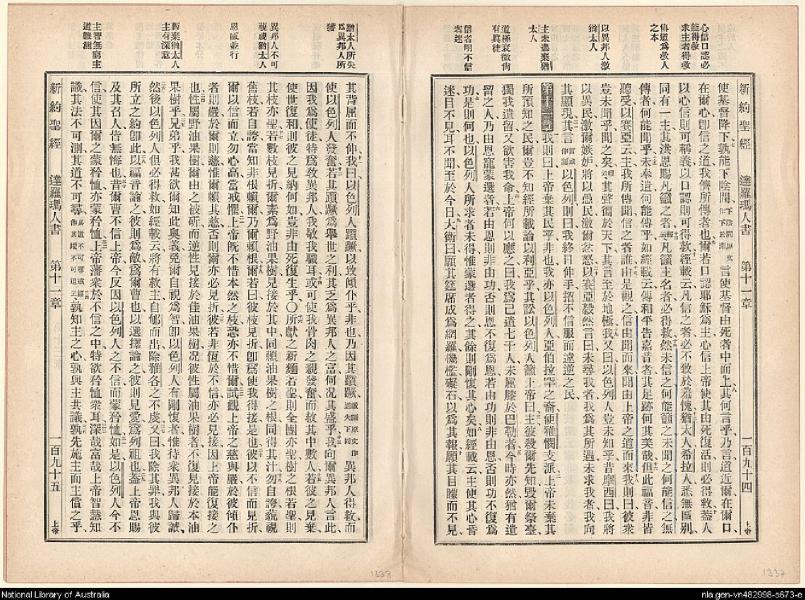 心信口認必能得救
求主者得救
傳道爲救人之本
以異邦人激猶太人
主未盡棄猶太人
信者明不信者迷
新約聖經 達羅瑪人書 第十一章 一百九十四 上帝
使基督降下孰能下陰間言使基督由死者中而上其何言乎乃言道近爾在爾口
在爾心卽信之道我儕所傳者也爾若口認耶穌爲主心信上帝使其由死復活則必得救蓋人
以心信則可稱義以口認則可得救經載云凡信之者必不致於羞愧猶太人希拉人悉無區別
同有一主其洪恩賜凡籲之者蓋凡籲主名者必得救然未信之何能籲之未聞之何能信之無
傳者何能聞乎未奉遣何能傳乎如經載云傳和平告嘉音者其足跡何其美哉但此福音非皆
聽受以賽亞云主我所傳聞信之者誰由是觀之信由聞而來聞由上帝之道而來我則曰彼衆
豈未聞乎聞之矣其聲徧於天下其言至於地極我又曰以色列人豈未知乎昔摩西曰我將
以異民激爾嫉妒將以愚民激爾忿怒以賽亞毅然言曰未尋我者我爲其所遇未求我者我向
其顯現其言以色列則曰我終日伸手招不信服而違逆之民
第十一章 我則曰上帝棄其民乎非也我亦以色列人亞伯拉罕之裔便雅憫支派上帝未棄其
所預知之民爾豈不知經所載論以利亞乎其訟以色列人籲上帝曰主彼殺爾先知毁爾祭臺
獨我遺留又欲害我命上帝何以應之曰我爲己遺七千人未屈膝於巴勒者今時亦然猶有遺
留之人乃由恩寵蒙選者若由恩則非由功否則恩不復爲恩若由功則非由恩否則功不復爲
功是則何也以色列人所求者未得惟蒙選者得之其餘則剛愎其心矣如經載云上帝使其心昏
迷目不見耳不聞至於今日大衛曰願其筵席成爲網羅機檻礙石以爲其報願其目矇而不見
猶太人所失爲異邦人所獲
異邦人不可藐視猶太人
恩威並行
主智無窮主道難測
其背屈而不伸我曰以色列人躓蹶以致傾仆乎非也乃因其躓蹶異邦人得救而
使以色列人發奮若其躓蹶爲舉世之利其乏爲異邦人之富何况其盛乎我向爾異邦人言此
因我爲使徒特爲敎異邦人我敬我職耳或可使我骨肉之親發奮而救其中數人若彼之見棄
使世復和則彼之見納何如豈非由死復生乎〇所獻之新麵若聖則全團亦聖樹之根若聖則
其枝亦聖若數枝見折爾素爲野油果樹見接於其中同霑油果樹之根同得其汁勿自誇藐視
舊枝若自誇當知非根賴爾乃爾賴根爾若曰彼枝見折卽爲使我得接是也彼以不信而見折
爾以信而立勿心高當戒懼上帝旣不惜本然之枝恐亦不惜爾試觀上帝之慈與嚴於彼傾仆
者則嚴於爾則慈惟爾賴其慈否則爾亦必見折彼若非復於不信亦必見接因上帝能復接之
也爾性屬野油果樹由之被斫而逆性見接於佳油果樹况彼性屬油果樹者不復見接於本油
果樹乎兄弟乎我甚欲爾知此奧義免爾自視爲智卽以色列人有剛愎者惟待衆異邦人歸誠
然後以色列人必得救如經載云將有救主自郇而出除雅各之不虔又曰我除其罪我與彼
所立之約卽此以福音論之彼則爲敵爲爾曹也以選擇論之彼則見愛爲列祖也蓋上帝恩賜
及其召人皆無悔也昔爾曹不信上帝今反因以色列人之不信而蒙矜恤如是以色列人今不
信使其因爾之蒙矜恤亦蒙矜恤上帝藩衆於不信之中特欲矜恤衆其深哉富哉上帝智慧知
識其法不可測其道不可尋孰知主之心孰與主共議孰先施主而主償之乎
新約聖經 達羅瑪人書 第十一章 一百九十五 上帝
National Library of Australia
nla.gen-vn482998-s673-e